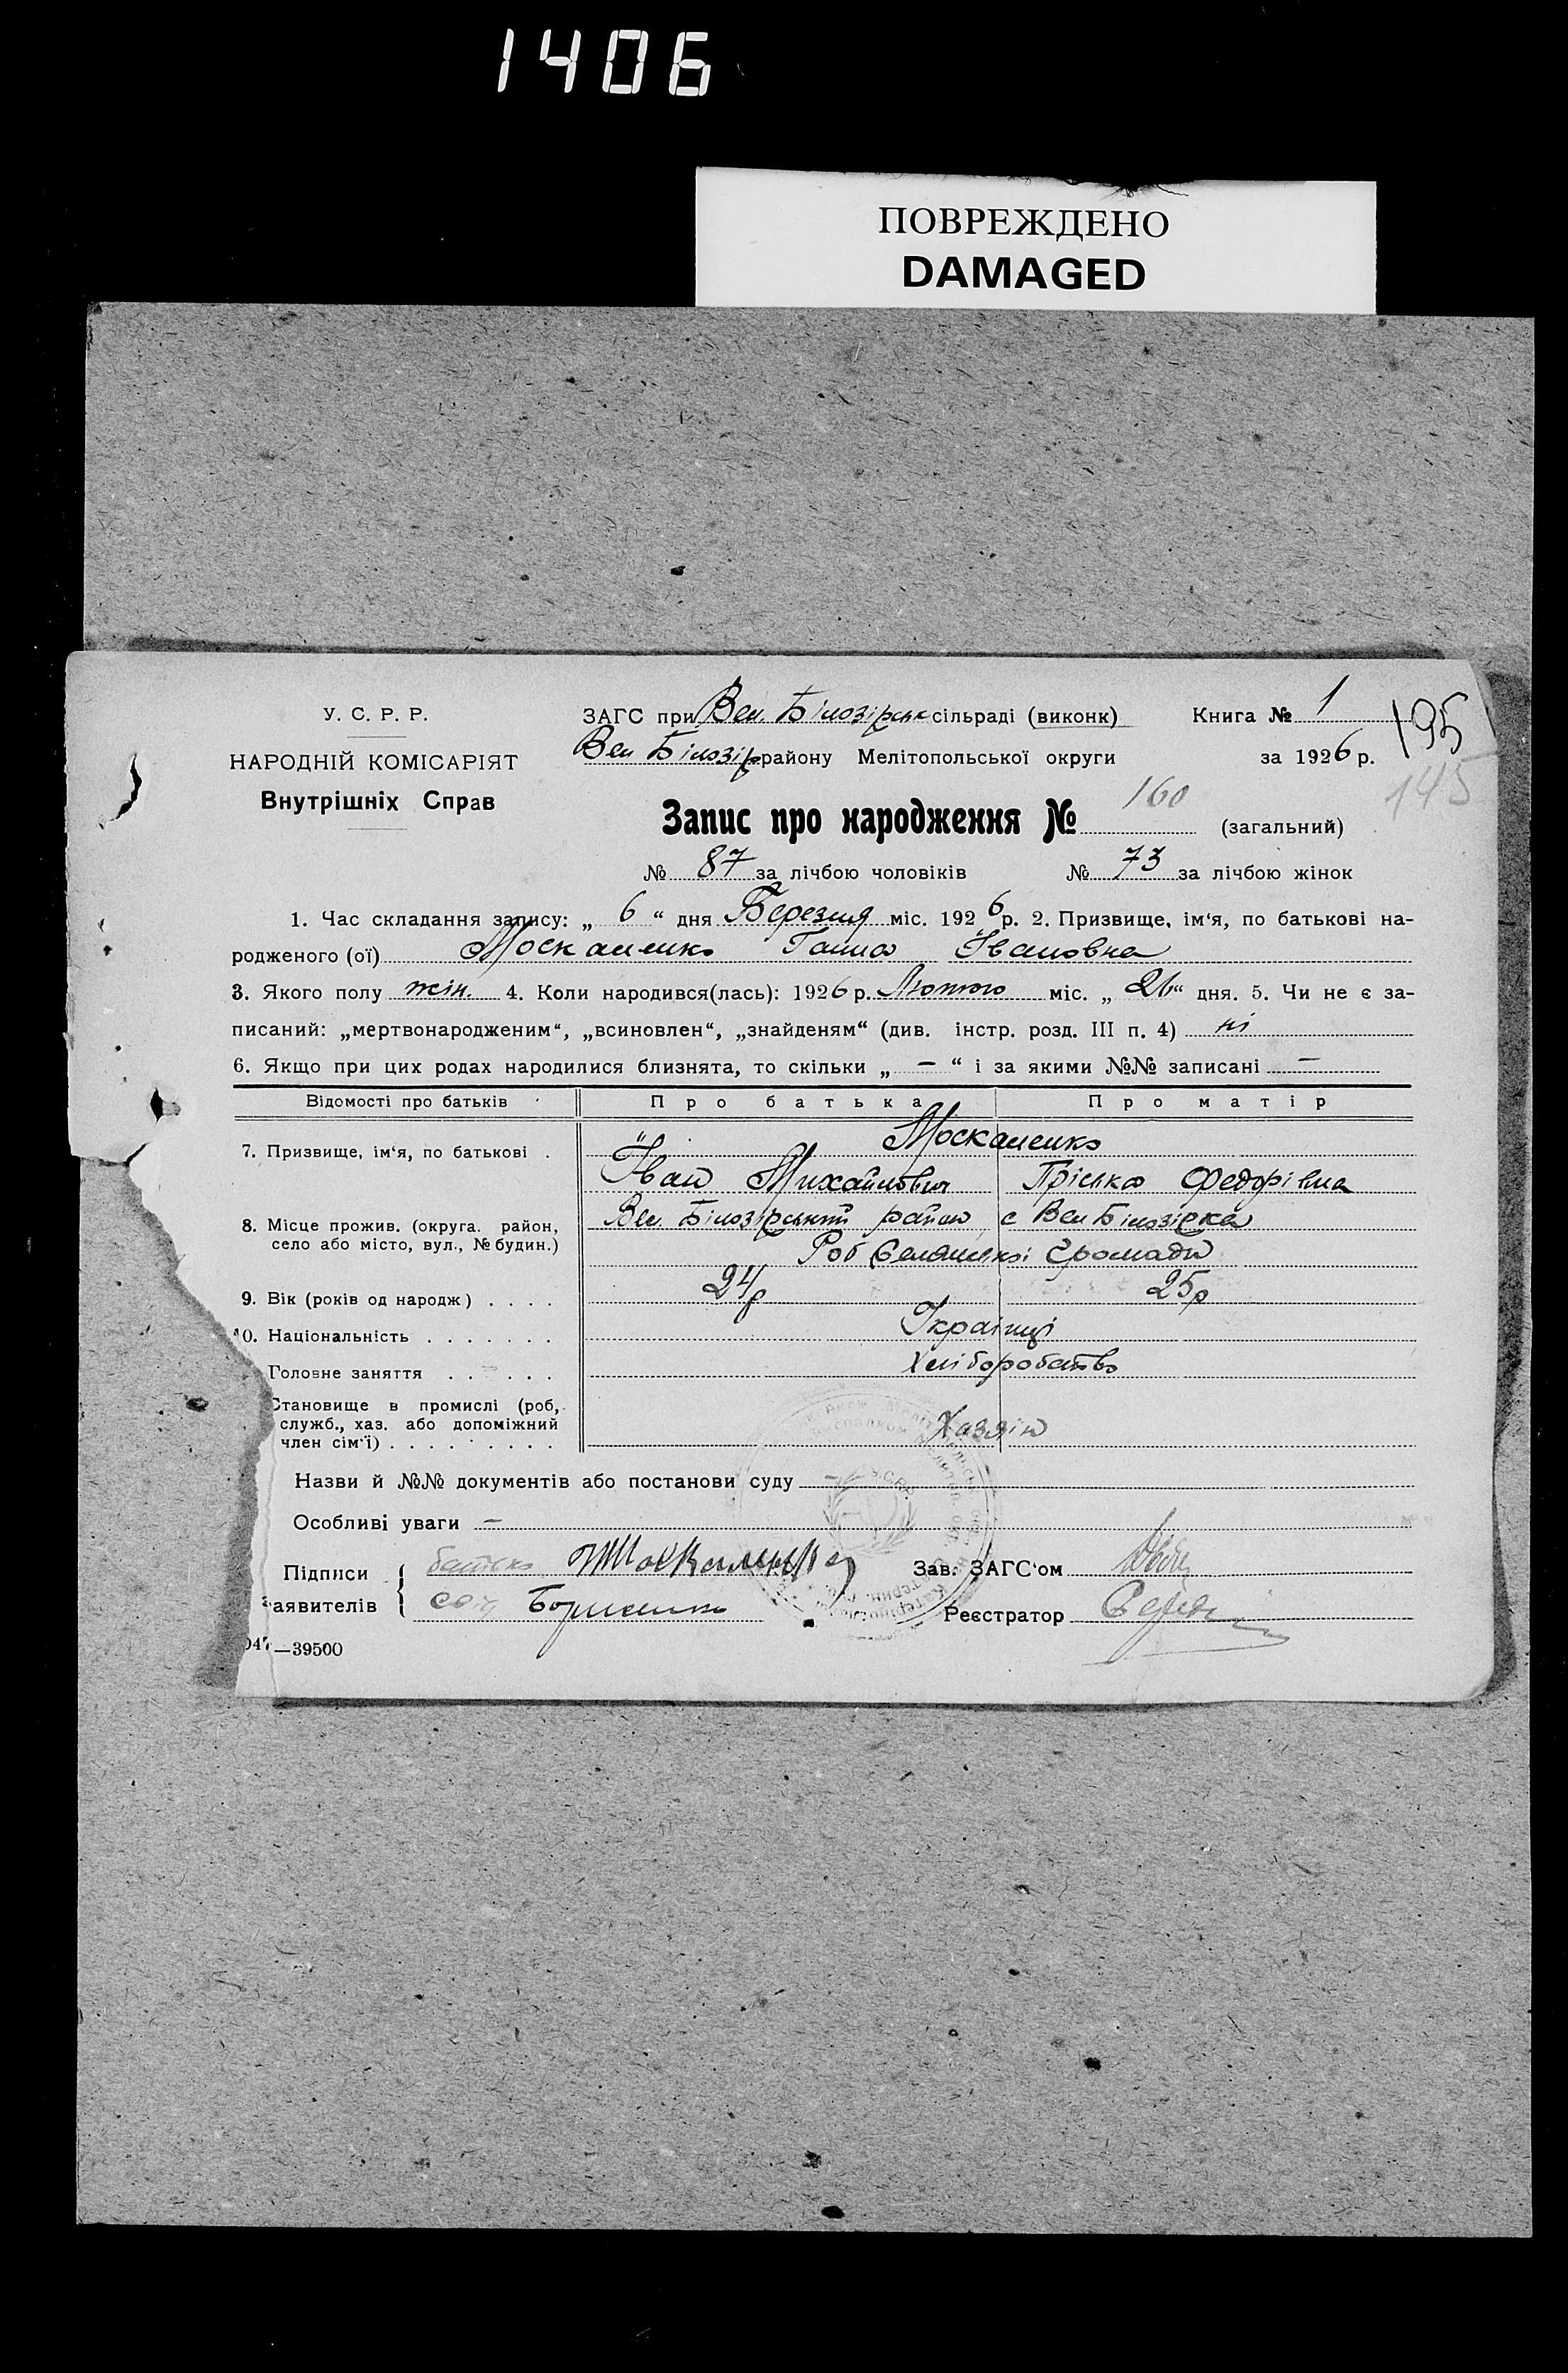 1406
ПОВРЕЖДЕНО
DAMAGED
У. С. Р. Р.
НАРОДНІЙ КОМІСАРІЯТ
Внутрішніх Справ
ЗАГС при Вел. Білозірськ сільраді (виконк)
Книга № 1
195
Вел Білозір району Мелітопольської округи
за 1926 р.
145
Запис про народження № 160 (загальний)
№ 87 за лічбою чоловіків № 73 за лічбою жінок
1. Час складання запису: „ 6 “ дня Березня міс. 1926 р. 2. Призвище, ім‘я, по батькові на-
родженого (ої) Москаленко Ганна Івановна
3. Якого полу жін. 4. Коли народився(лась): 1926 р. Лютого міс. „ 26 “ дня. 5. Чи не є за-
писаний: „мертвонародженим“, „всиновлен“, „знайденям“ (див. інстр. розд. III п. 4) ні
6. Якщо при цих родах народилися близнята, то скільки „ — “ і за якими №№ записані —
Відомості про батьків
Про батька
Про матір
7. Призвище, ім‘я, по батькові .
Москаленко
Іван Михайлович
Пріська Федорівна
8. Місце прожив. (округа. район,
село або місто, вул., № будин.)
Вел. Білозірський район с Вел Білозірка
Роб Селянської Громади
9. Вік (років од народж) . . . .
24 р
25 р
10. Національність . . . . . . .
Українці
Головне заняття . . . . . .
Хліборобство
Становище в промислі (роб,
служб., хаз. або допоміжний
член сім‘ї) . . . . . . . . .
Хазяїн
Назви й №№ документів або постанови суду —
Особливі уваги —
Підписи
заявителів
батько Москаленко
Зав. ЗАГС‘ом
Реєстратор
—39500